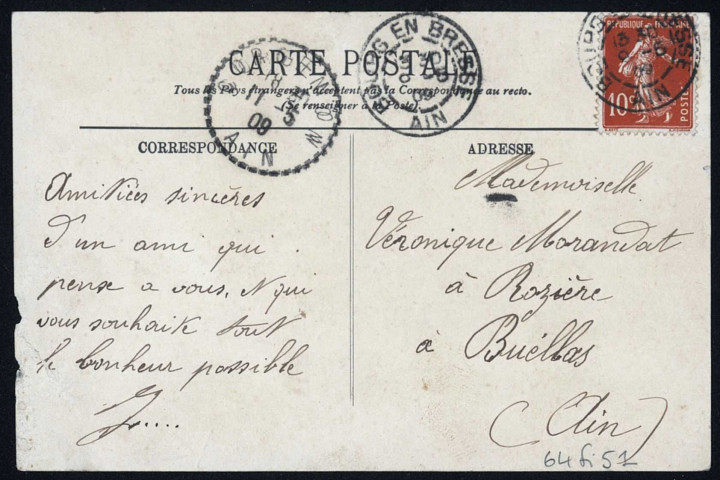 CARTE POSTALE
Tous les Pays étrangers n'acceptent pas la Correspondance au recto.
(Se renseigner à la Poste).
BOURG EN BRESSE
09
AIN
AIN
09
BRESSE
AIN
REPUBLIQUE FRANÇAISE
10
POSTES
CORRESPONDANCE
Amitiées sincères
d'un ami qui
pense a vous, & qui
vous souhaite tout
le bonheur possible
J.....
ADRESSE
Mademoiselle
Véronique Morandat
à Rozière
à Buëllas
(Ain)
64 fi 51